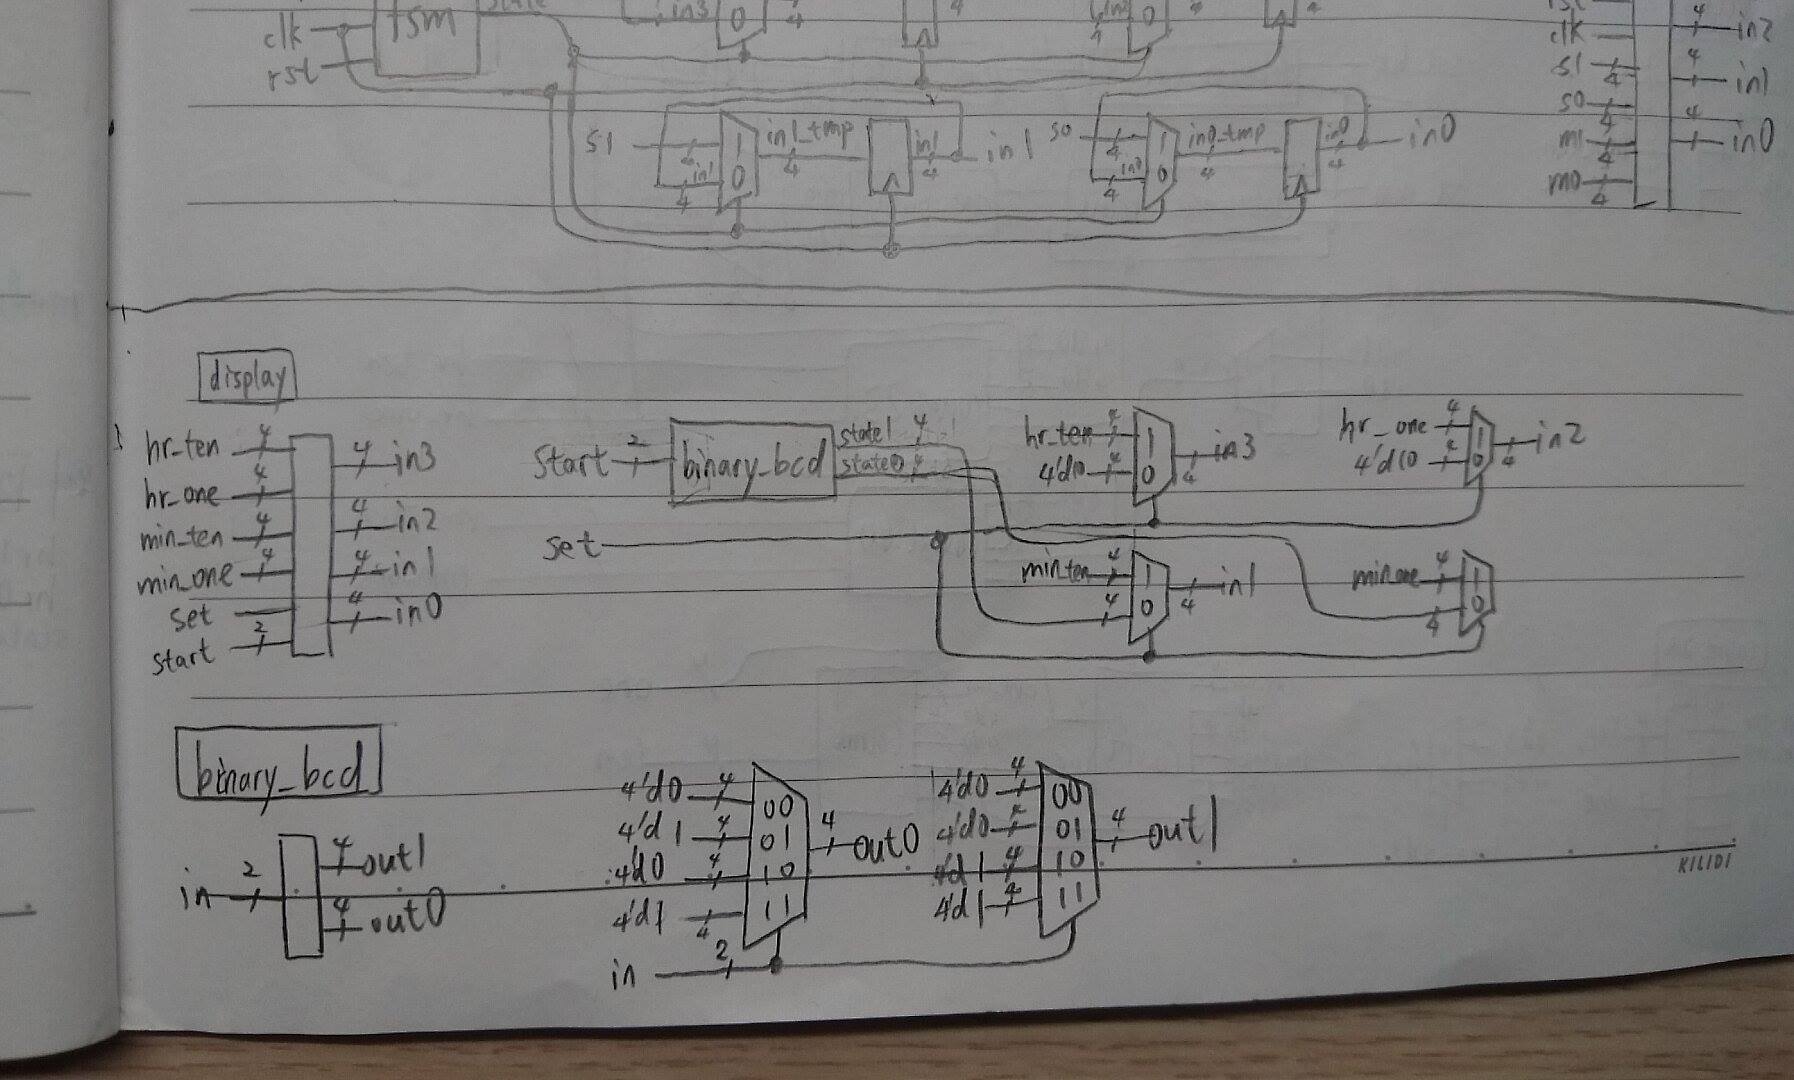 clk
fsm
rst
in3
0
4
4
0
4
in2
clk
4
s1
4
in1
s0
4
4
in0
m1
4
m0
4
s1
4
in1
4
1
0
in1_tmp
4
in1
4
in1
s0
4
in0
4
1
0
in0_tmp
4
in0
4
in0
display
hr_ten 4
hr_one 4
min_ten 4
min_one 4
set
start 2
4 in3
4 in2
4 in1
4 in0
Start 2
binary_bcd
state1 4
state0 4
set
hr_ten 4
4'd10 4
1
0
4
in3
hr_one 4
4'd10 4
1
0
4
in2
min_ten 4
4
1
0
4
in1
min_one 4
4
1
0
binary_bcd
in 2
4 out1
4 out0
4'd0 4 00
4'd1 4 01
4'd0 4 10
4'd1 4 11
4 out0
in 2
4'd0 4 00
4'd0 4 01
4'd1 4 10
4'd1 4 11
4 out1
KILIDI